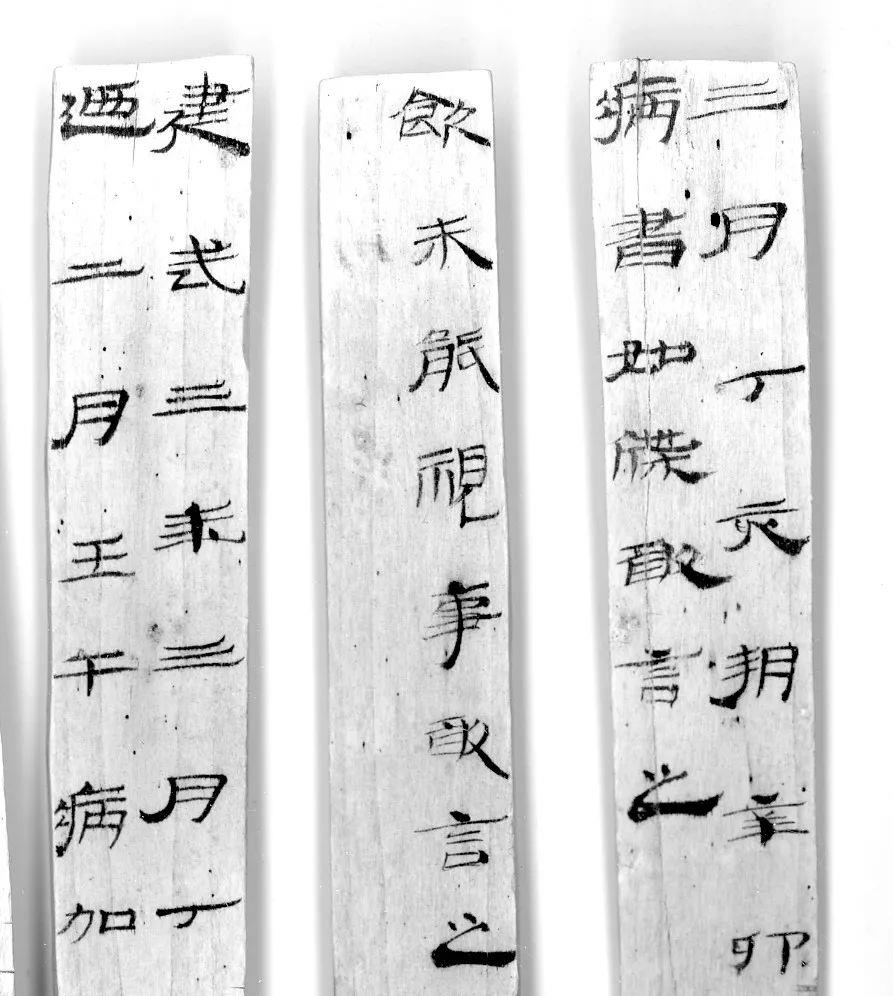 建武三年三月丁
迺二月壬午病加
飲未能視事敢言之
三月丁亥朔辛卯
病書如牒敢言之